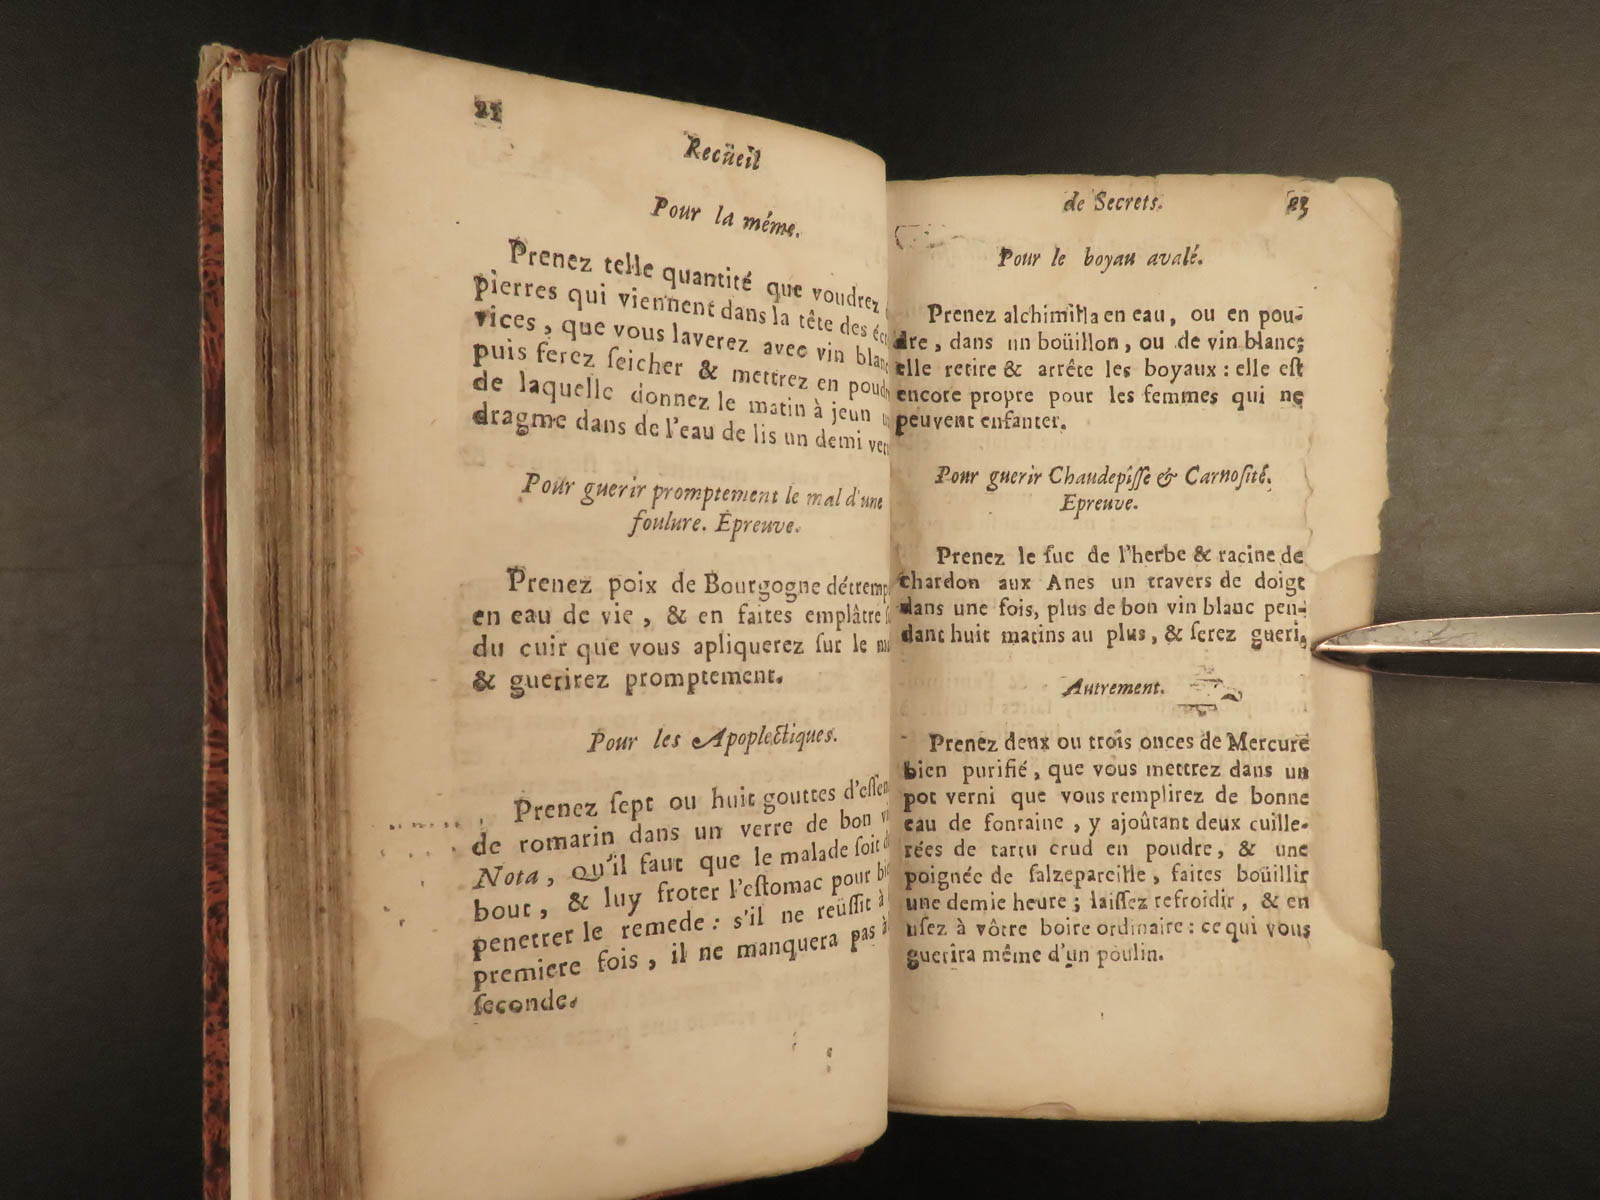 Recüeil
Pour la méme.
Prenez telle quantité que voudrez
pierres qui viennent dans la tête des
vices, que vous laverez avec vin
puis ferez ſeicher & mettrez en
de laquelle donnez le matin à jeun
dragme dans de l'eau de lis un demi
Pour guerir promptement le mal d'une
foulure. Épreuve.
Prenez poix de Bourgogne
en eau de vie, & en faites emplâtre
du cuir que vous apliquerez ſur le
& guerirez promptement.
Pour les Apoplectiques.
Prenez ſept ou huit gouttes
de romarin dans un verre de bon
Nota, qu'il faut que le malade ſoit
bout, & luy froter l'eſtomac pour
penetrer le remede: s'il ne reüſſit à
premiere fois, il ne manquera pas
ſeconde.
de Secrets. 23
Pour le boyau avalé.
Prenez alchimilla en eau, ou en pou-
dre, dans un boüillon, ou de vin blanc;
elle retire & arrête les boyaux: elle eſt
encore propre pour les femmes qui ne
peuvent enfanter.
Pour guerir Chaudepiſſe & Carnoſité.
Epreuve.
Prenez le ſuc de l'herbe & racine de
chardon aux Anes un travers de doigt
dans une fois, plus de bon vin blanc pen-
dant huit matins au plus, & ſerez gueri.
Autrement.
Prenez deux ou trois onces de Mercure
bien purifié, que vous mettrez dans un
pot verni que vous remplirez de bonne
eau de fontaine, y ajoûtant deux cuille-
rées de tartu crud en poudre, & une
poignée de ſalzepareille, faites boüillir
une demie heure; laiſſez refroidir, & en
uſez à vôtre boire ordinaire: ce qui vous
guerira même d'un poulin.